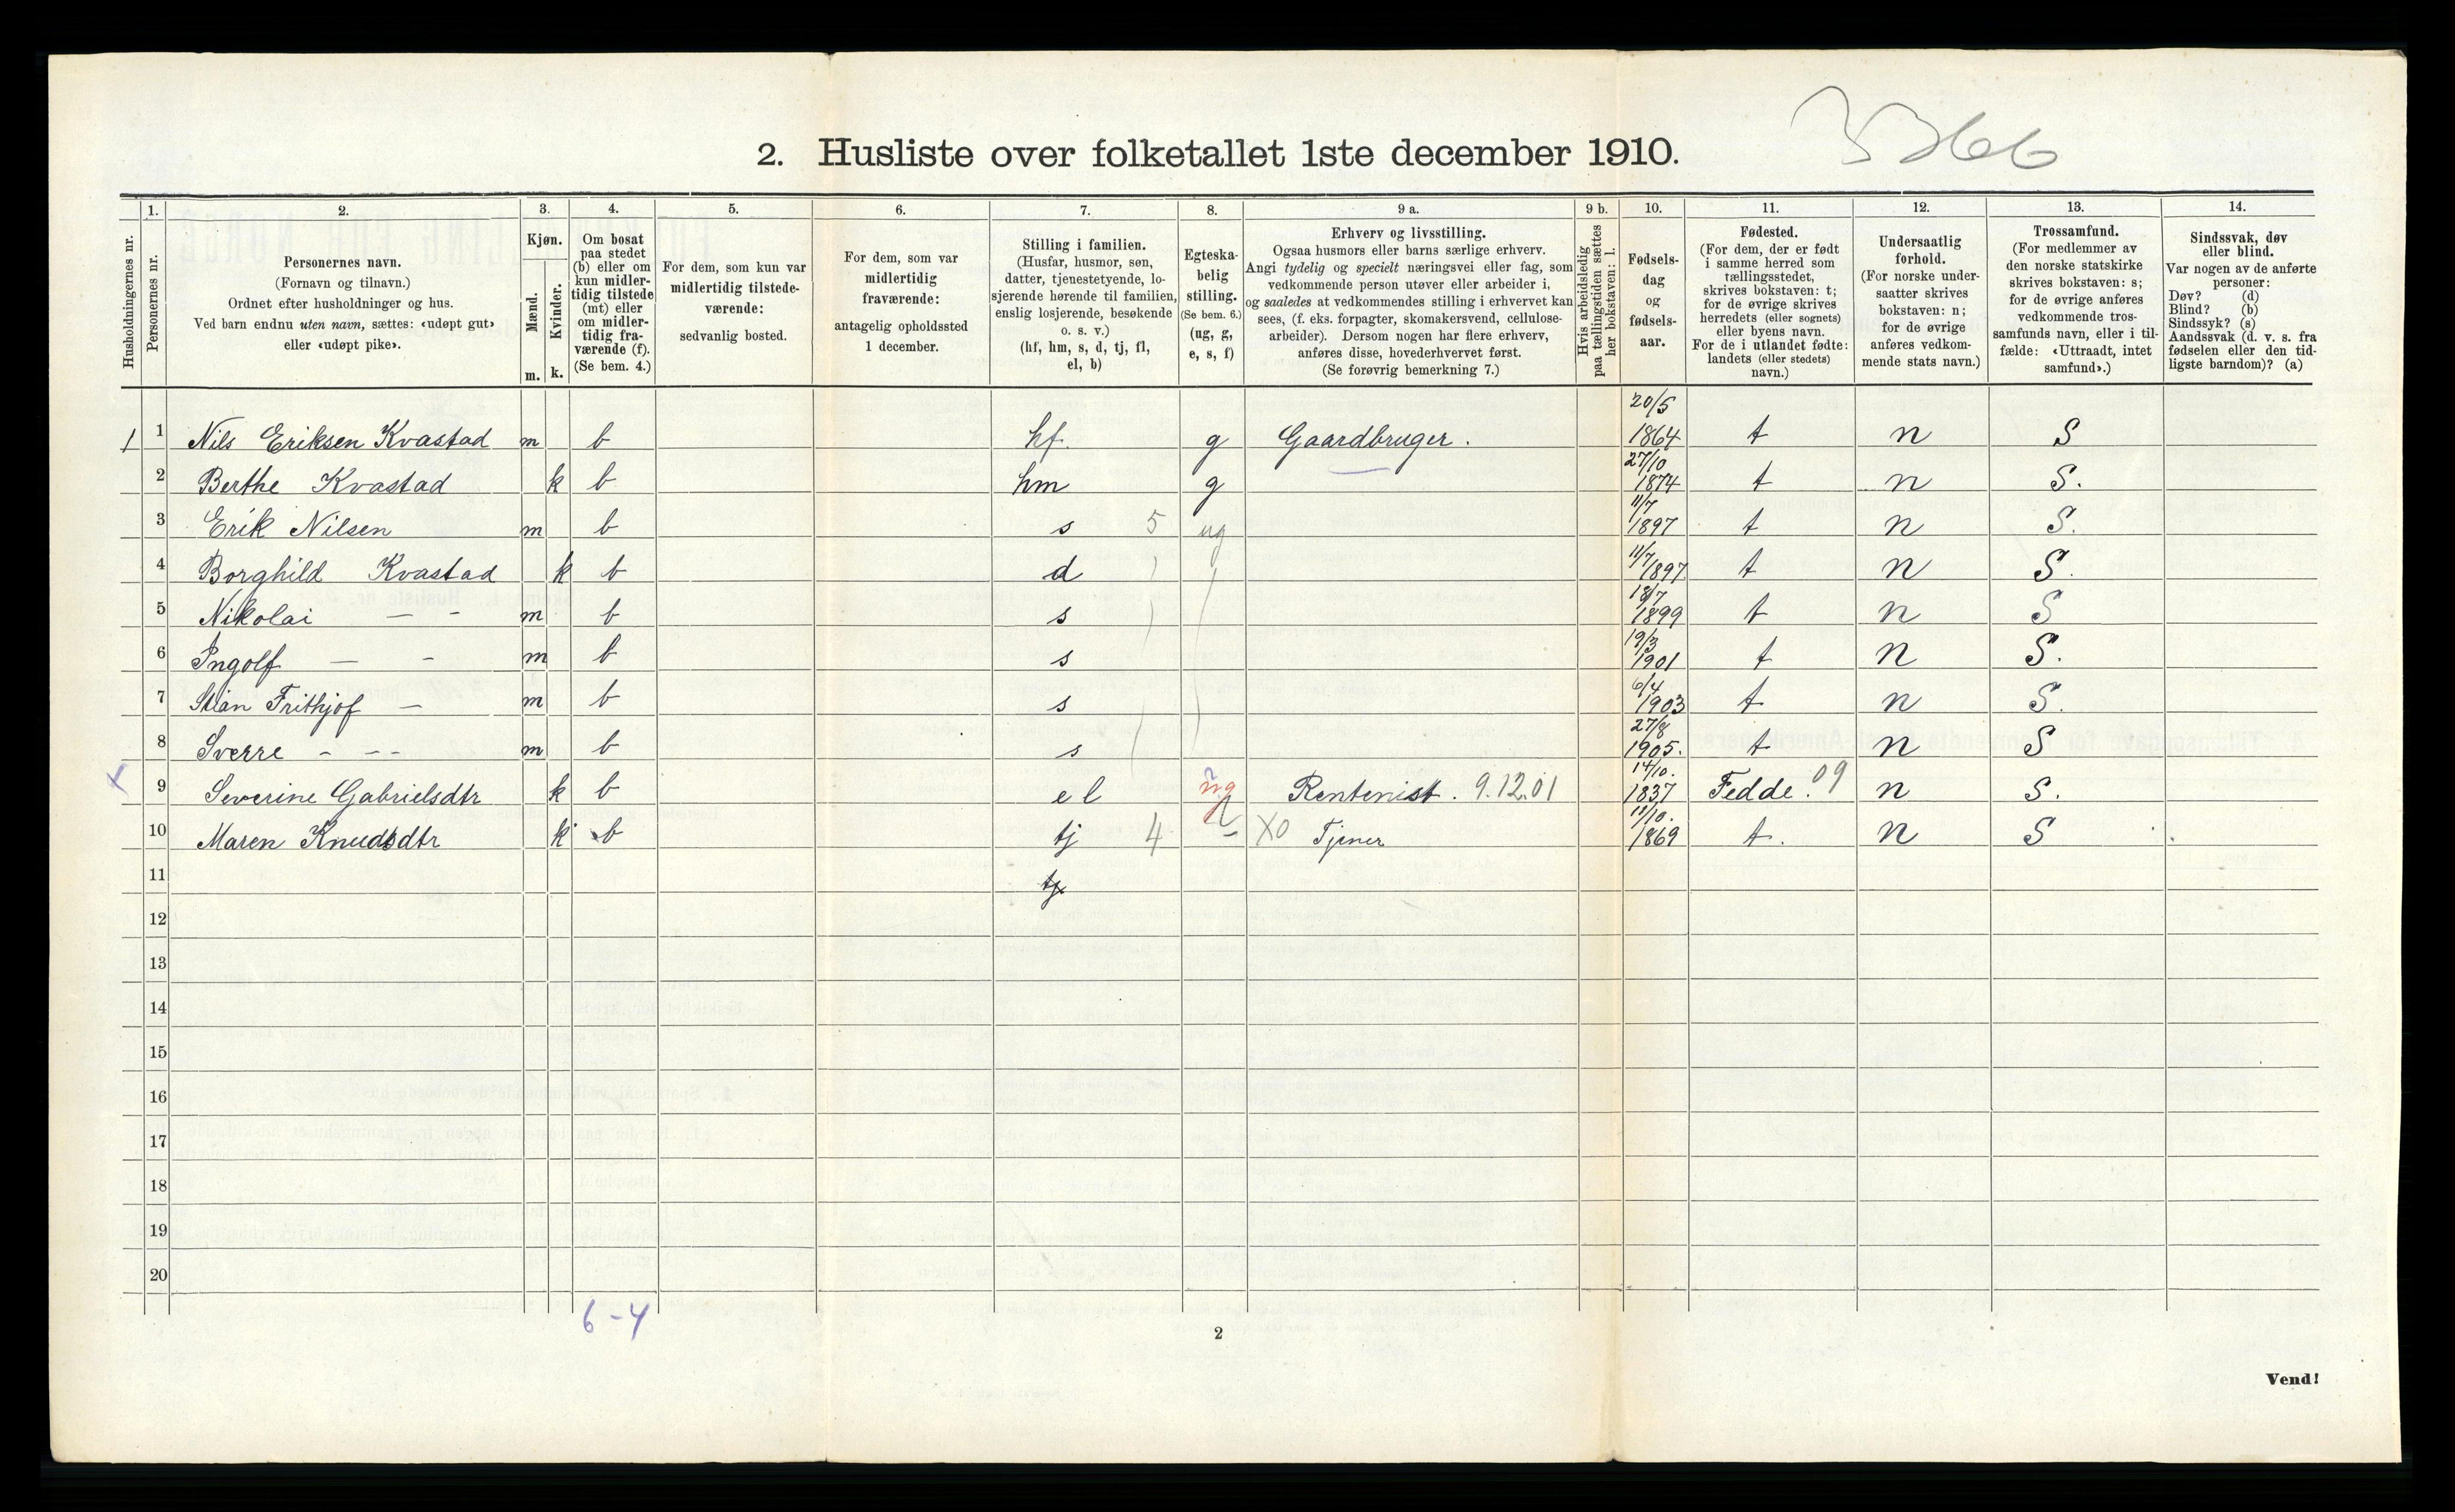 3366
2. Husliste over folketallet 1ste december 1910.
Husholdningernes nr.
1. Personernes nr.
2. Personernes navn.
(Fornavn og tilnavn.)
Ordnet efter husholdninger og hus.
Ved barn endnu uten navn, sættes: «udøpt gut»
eller «udøpt pike».
3. Kjøn.
Mænd. m.
Kvinder. k.
4. Om bosat
paa stedet
(b) eller om
kun midler-
tidig tilstede
(mt) eller
om midler-
tidig fra-
værende (f).
(Se bem. 4.)
5. For dem, som kun var
midlertidig tilstede-
værende:
sedvanlig bosted.
6. For dem, som var
midlertidig
fraværende:
antagelig opholdssted
1 december.
7. Stilling i familien.
(Husfar, husmor, søn,
datter, tjenestetyende, lo-
sjerende hørende til familien,
enslig losjerende, besøkende
o. s. v.)
(hf, hm, s, d, tj, fl,
el, b)
8. Egteska-
belig
stilling.
(Se bem. 6.)
(ug, g,
e, s, f)
9 a. Erhverv og livsstilling.
Ogsaa husmors eller barns særlige erhverv.
Angi tydelig og specielt næringsvei eller fag, som
vedkommende person utøver eller arbeider i,
og saaledes at vedkommendes stilling i erhvervet kan
sees, (f. eks. forpagter, skomakersvend, cellulose-
arbeider). Dersom nogen har flere erhverv,
anføres disse, hovederhvervet først.
(Se forøvrig bemerkning 7.)
9 b. Hvis arbeidsledig
paa tællingstiden sættes
her bokstaven: l.
10. Fødsels-
dag
og
fødsels-
aar.
11. Fødested.
(For dem, der er født
i samme herred som
tællingsstedet,
skrives bokstaven: t;
for de øvrige skrives
herredets (eller sognets)
eller byens navn.
For de i utlandet fødte:
landets (eller stedets)
navn.)
12. Undersaatlig
forhold.
(For norske under-
saatter skrives
bokstaven: n;
for de øvrige
anføres vedkom-
mende stats navn.)
13. Trossamfund.
(For medlemmer av
den norske statskirke
skrives bokstaven: s;
for de øvrige anføres
vedkommende tros-
samfunds navn, eller i til-
fælde: «Uttraadt, intet
samfund».)
14. Sindssvak, døv
eller blind.
Var nogen av de anførte
personer:
Døv? (d)
Blind? (b)
Sindssyk? (s)
Aandssvak (d. v. s. fra
fødselen eller den tid-
ligste barndom)? (a)
1 1 Nils Eriksen Kvastad m b hf. g Gaardbruger. 20/5 1864 t n S
2 Berthe Kvastad k b hm g 27/10 1874 t n S.
3 Erik Nilsen m b s 5 ug 11/7 1897 t n S.
4 Borghild Kvastad k b d 11/7 1897 t n S.
5 Nikolai — - m b s 18/7 1899 t n S
6 Ingolf — - m b s 19/3 1901 t n S.
7 Stian Frithjof — m b s 6/4 1903 t n S.
8 Sverre - -- m b s 27/8 1905. t n S
x 9 Severine Gabrielsdtr k b el ug Rentenist. 9.12.01 14/10. 1837 Fedde. 09 n S.
10 Maren Knudsdtr k b tj 4 - XO Tjener 11/10. 1869 t. n S
11 tj
12
13
14
15
16
17
18
19
20
6-4
2
Vend!